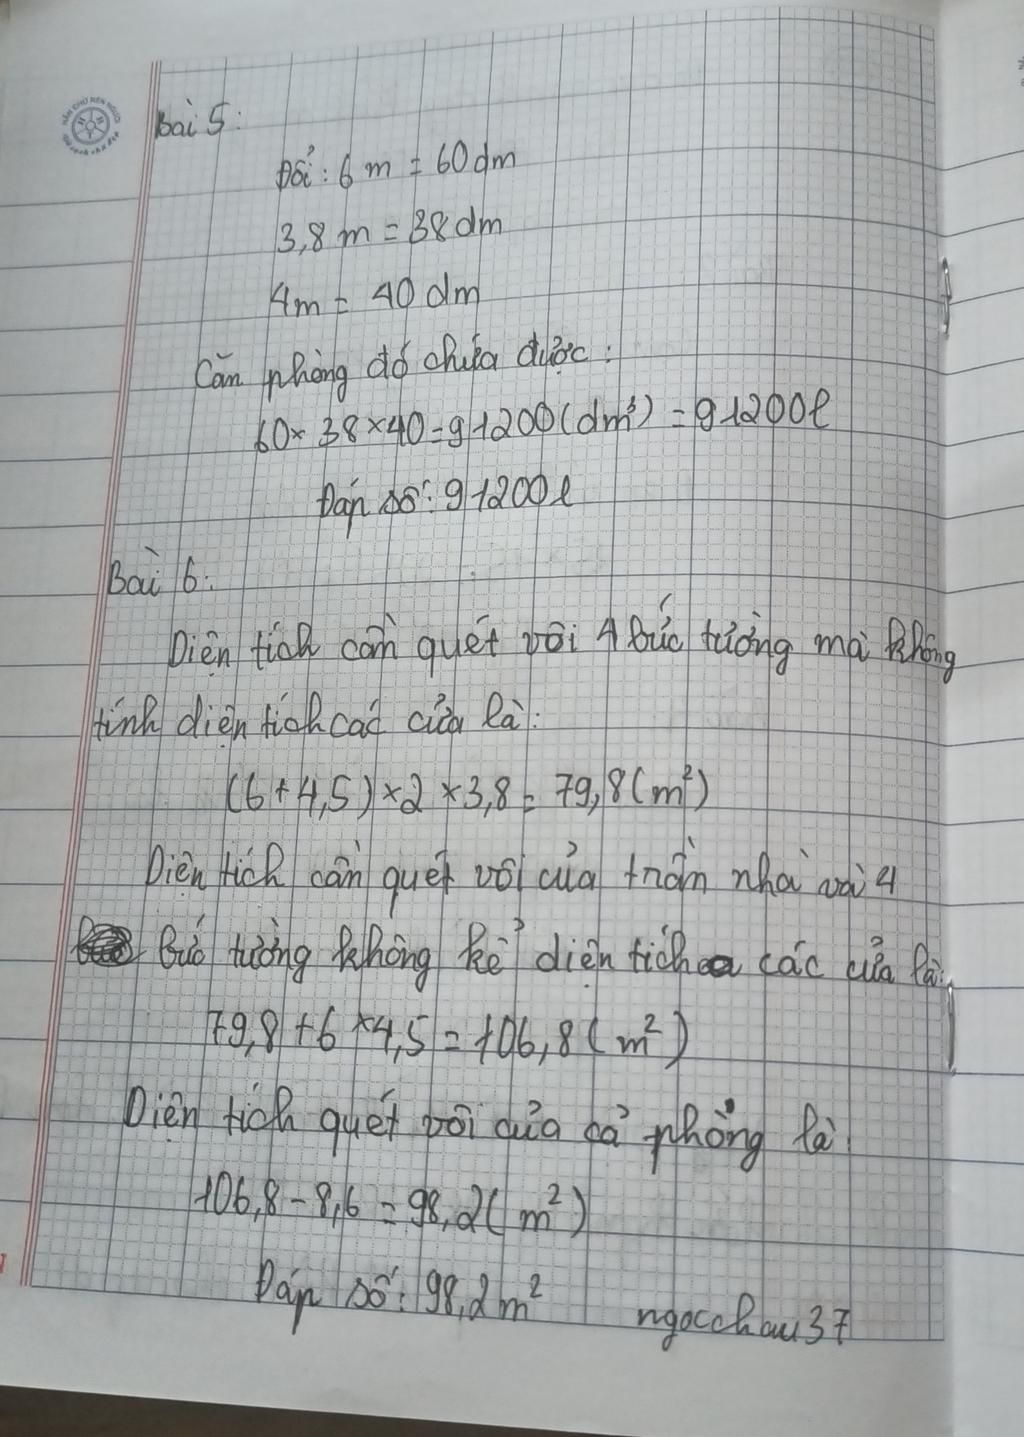 Bài 5:
Đổi: 6 m = 60 dm
3,8 m = 38 dm
4m = 40 dm
Căn phòng đó chứa được:
60 × 38 × 40 = 91200 (dm³) = 91200l
Đáp số: 91200l
Bài 6:
Diện tích cần quét vôi 4 bức tường mà không
tính diện tích các cửa là:
(6 + 4,5) × 2 × 3,8 = 79,8 (m²)
Diện tích cần quét vôi của trần nhà và 4
bức tường không kể diện tích các cửa là:
79,8 + 6 × 4,5 = 106,8 (m²)
Diện tích quét vôi của cả phòng là:
106,8 - 8,6 = 98,2 (m²)
Đáp số: 98,2 m² ngocchau37